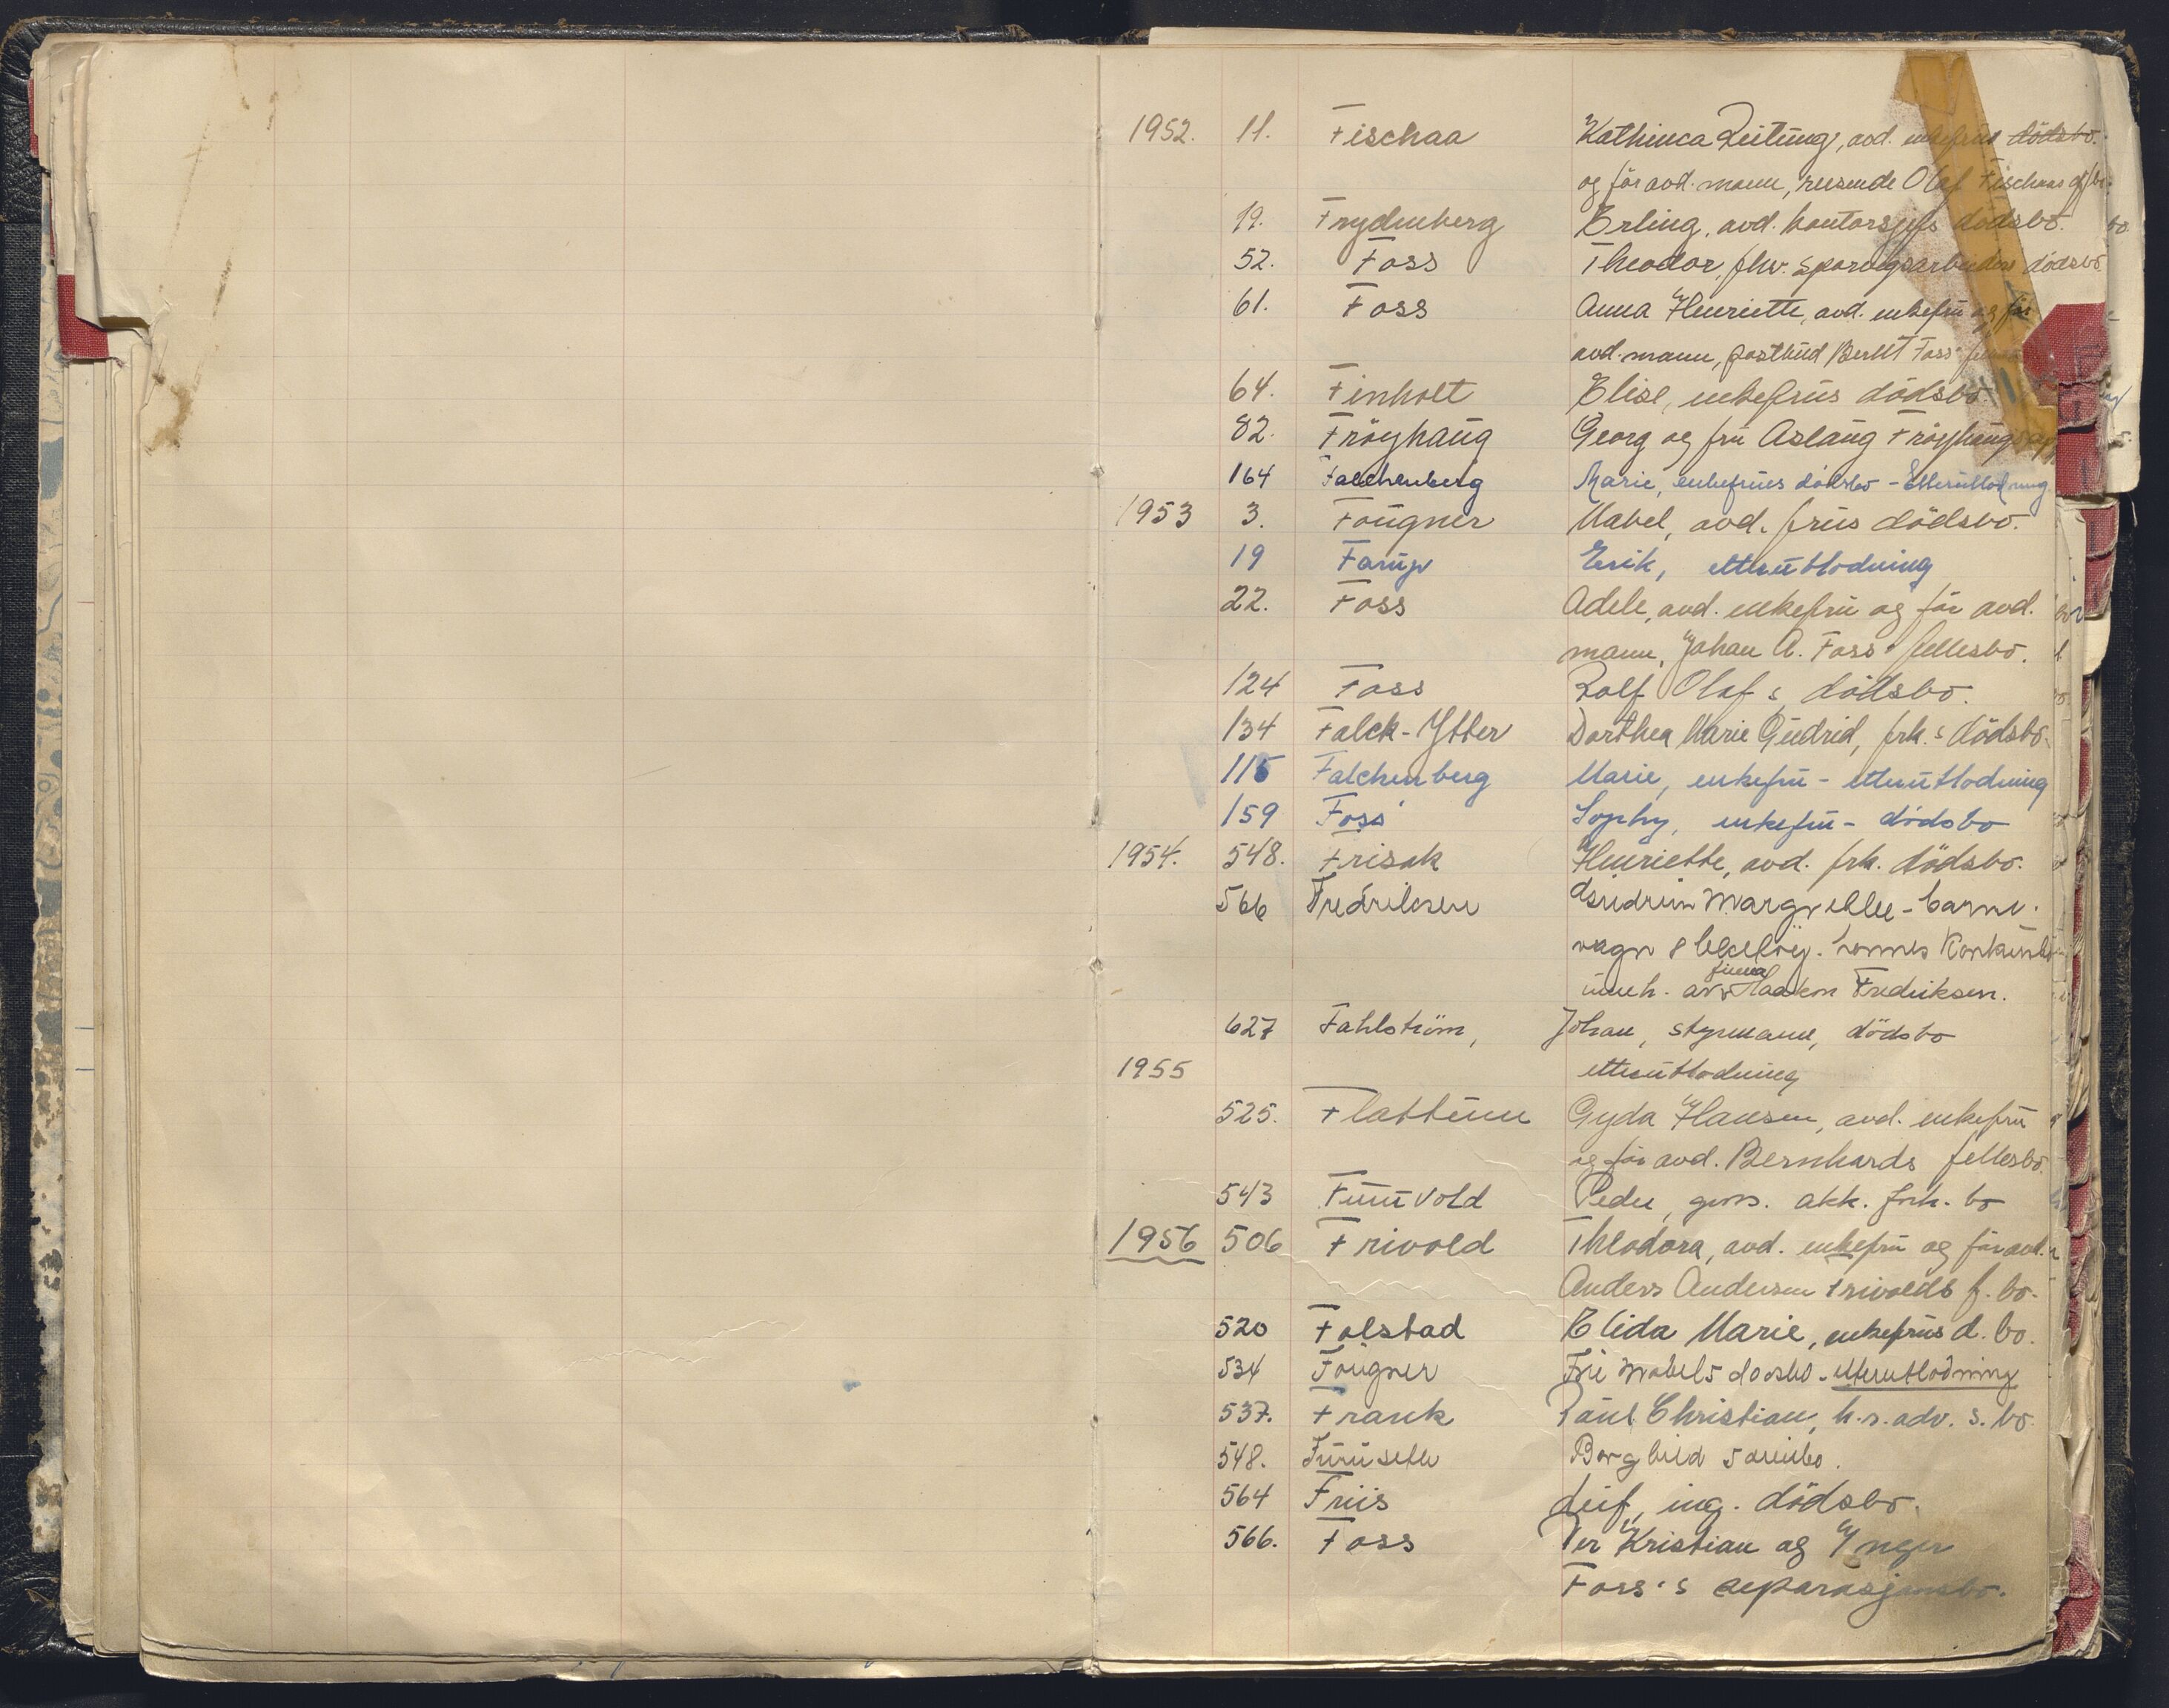 1952. 11. Fischaa Kathinca Zeitung, avd. enkefrus dödsbo.
og för avd. mann, reisende Olaf Fischaas
19. Frydenberg Erling, avd. kontorsjefs dödsbo.
52. Foss Theodor, fhv. sporvegsarbeiders dödsbo
61. Foss Anna Henriette, avd. enkefru og för
avd. mann, postbud Berllt Foss'
64. Finholt Elise, enkefrus dödsbo.
82. Fröyhaug Georg og fru Aslaug Fröyhaugs
164 Falchenberg Marie, enkefrus dödsbo - Etterutlodning
1953 3. Fougner Mabel, avd. frus dödsbo.
19 Farup Erik, etterutlodning
22. Foss Adele, avd. enkefru og för avd.
mann, Johan A. Foss' fellesbo.
124 Foss Rolf Olaf s dödsbo.
134 Falck-Ytter Dorthea Marie Gudrid, frk.s dödsbo.
115 Falchenberg Marie, enkefru - etterutlodning
159 Foss Sophy, enkefru - dödsbo
1954. 548. Frisak Henriette, avd. frk. dödsbo.
566 Fredriksen Margrethe - barne-
vogn & leketöy. hennes Konkursbo
inneh. av firma Haakon Fredriksen.
627 Fahlström, Johan, styrmann, dödsbo
1955 etterutlodning
525. Flattum Gyda Hansen, avd. enkefru
og för avd. Bernhards fellesbo.
543 Furuvold Peder, gross. akk. forh. bo
1956 506 Frivold Theodora, avd. enkefru og för avd.
Anders Andersen Frivolds f. bo.
520 Folstad Elida Marie, enkefrus d. bo.
534 Fougner Fru Mabels dödsbo - etterutlodning
537. Frank Paul Christian, h.r.adv. s. bo.
548. Furuseth Borghild s
564 Friis Leif, ing. dödsbo.
566. Foss Per Kristian og Ynger
Foss's separasjonsbo.